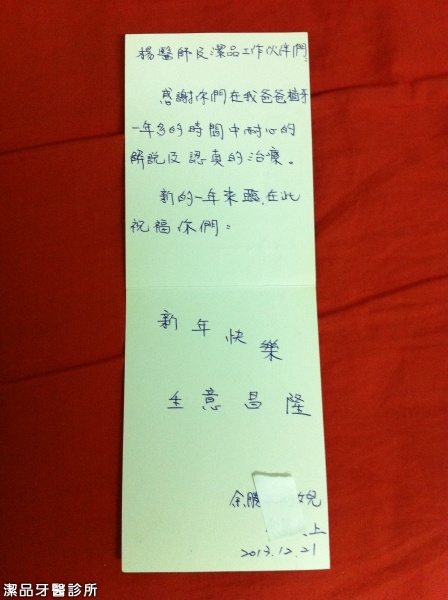 楊醫師及潔品工作伙伴們:
感謝你們在我爸爸植牙
一年多的時間中耐心的
解說及認真的治療。
新的一年來臨,在此
祝福你們:
新年快樂
生意昌隆
余
上
2013.12.21
潔品牙醫診所